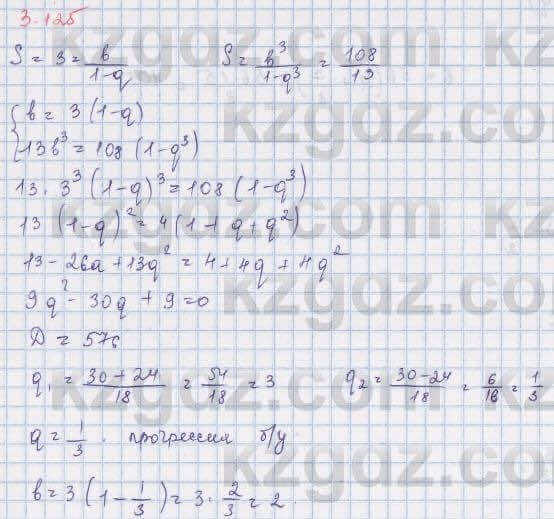 3.125
S = 3 = b/(1-q)   S = b³/(1-q³) = 108/13
{ b = 3 (1-q)
13b³ = 108 (1-q³)
13 · 3³ (1-q)³ = 108 (1-q³)
13 (1-q)² = 4 (1+q+q²)
13 - 26q + 13q² = 4 + 4q + 4q²
9q² - 30q + 9 = 0
D = 576
q₁ = (30+24)/18 = 54/18 = 3   q₂ = (30-24)/18 = 6/18 = 1/3
q = 1/3 . прогрессия б/у
b = 3 (1 - 1/3) = 3 · 2/3 = 2.
kzgdz.com